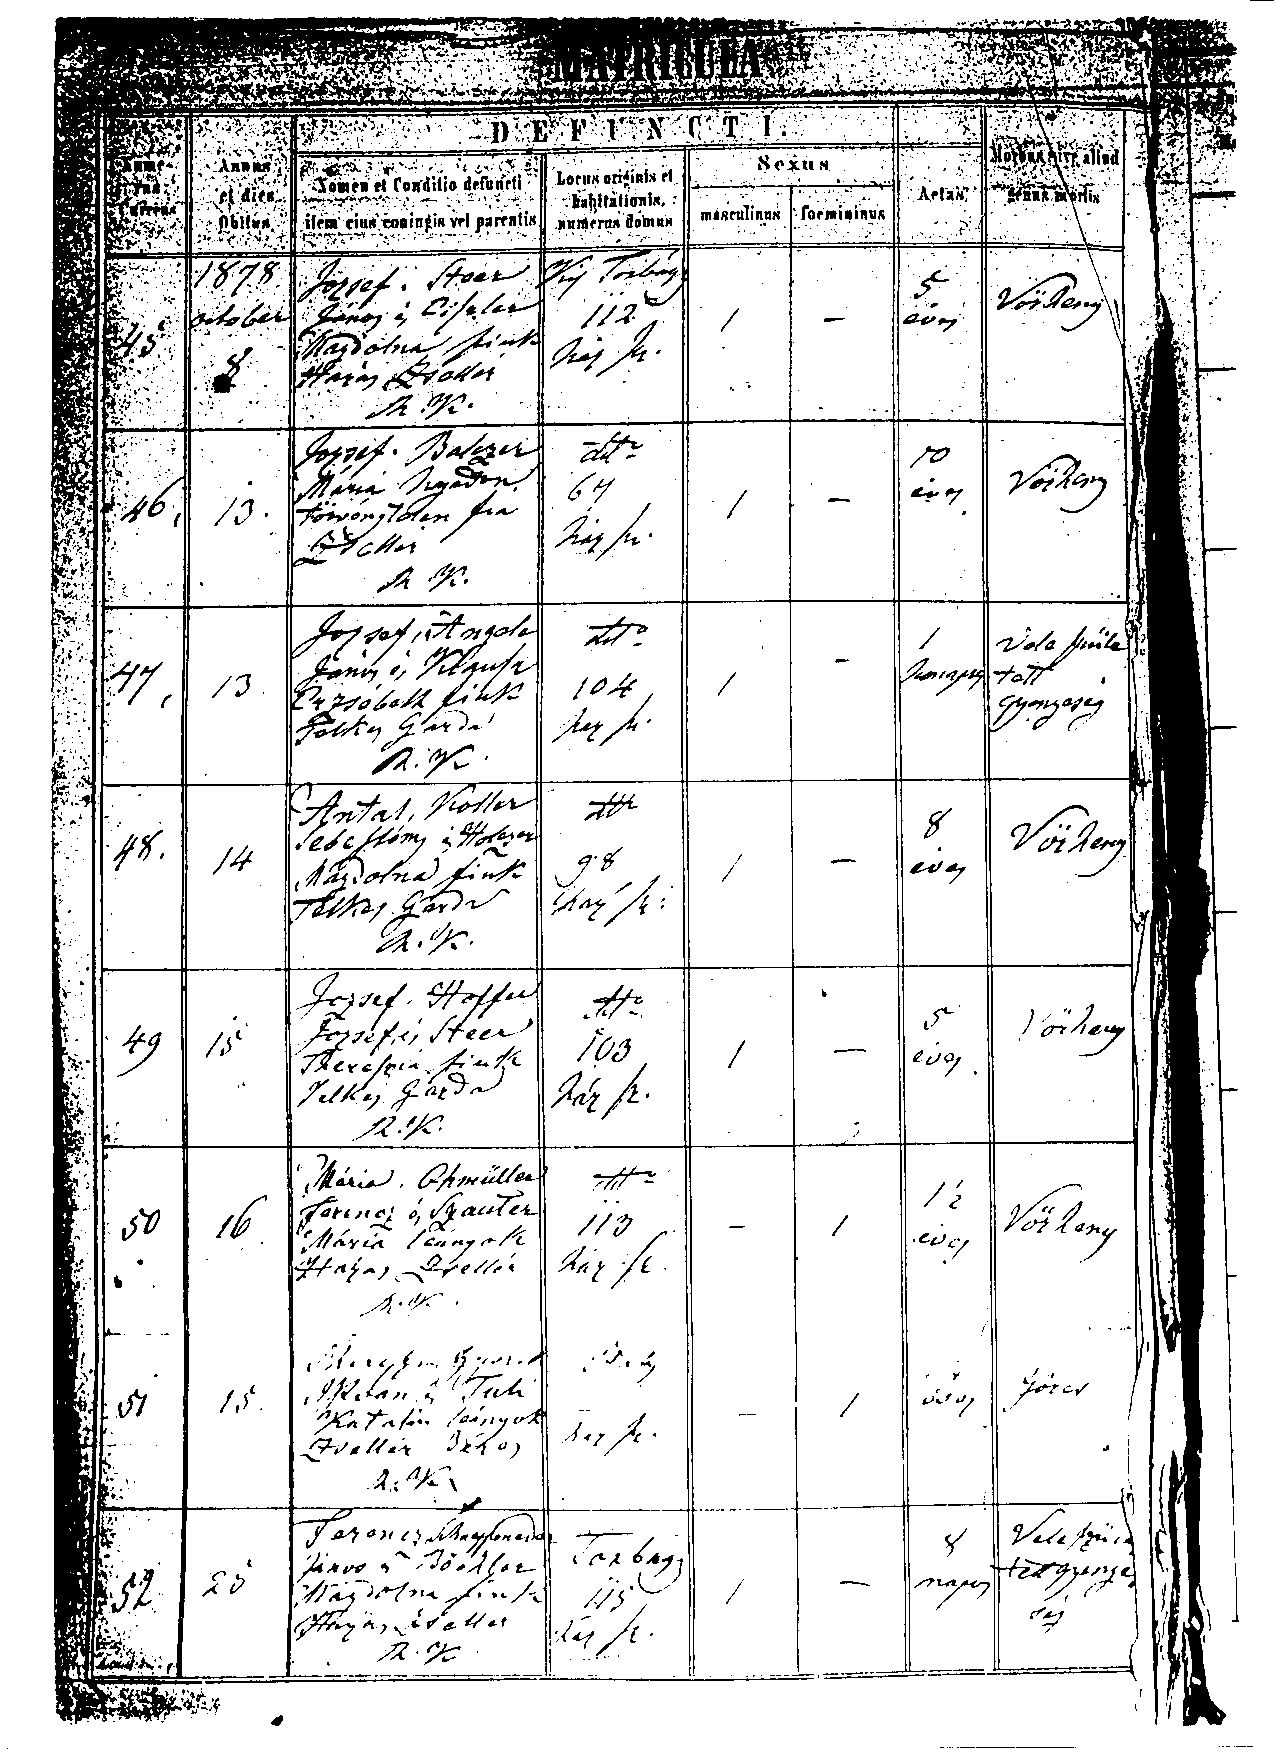 MATRICULA
DEFUNCTI.
Numerus Currens
Annus et dies Obitus
Nomen et Conditio defuncti
item eius coniugis vel parentis
Locus originis et
habitationis,
numerus domus
Sexus
masculinus
foemininus
Aetas
Morbus sive aliud
genus mortis
45
1878
október
8
József. Steer
János és
Magdolna fiuk
Házas Zsellér
R. K.
Torbágy
112
ház sz.
1
—
5
éves
Vörheny
46.
13.
József. Balczer
Mária
törvénytelen fia
Zsellér
R. K.
dtto
67
ház sz.
1
—
10
éves
Vörheny
47,
13
József, Angele
János és Klausz
Erzsébeth fiuk
Telkes Gazda
R. K.
dtto
104
ház sz.
1
—
1
hónapos
Vele szüle
tett
gyengeség
48.
14
Antal, Koller
Sebestény és Holczer
Magdolna fiuk
Telkes Gazda
R. K.
dtto
98
ház sz.
1
—
8
éves
Vörheny
49
15
József. Hoffer
József és Steer
Therészia fiuk
Telkes Gazda
R. K.
dtto
103
ház sz.
1
—
5
éves
Vörheny
50
16
Mária. Ohmüller
Ferencz és Szauter
Mária leányok
Házas Zsellér
R. K.
dtto
113
ház sz.
—
1
1½
éves
Vörheny
51
15.
Katalin leányok
Zsellér
R. K.
ház sz.
—
1
éves
52
25
Ferencz
János és Böckler
Magdolna fiuk
Házas Zsellér
R. K.
Torbágy
115
ház sz.
1
—
8
napos
Vele szüle
tett gyenge
ség